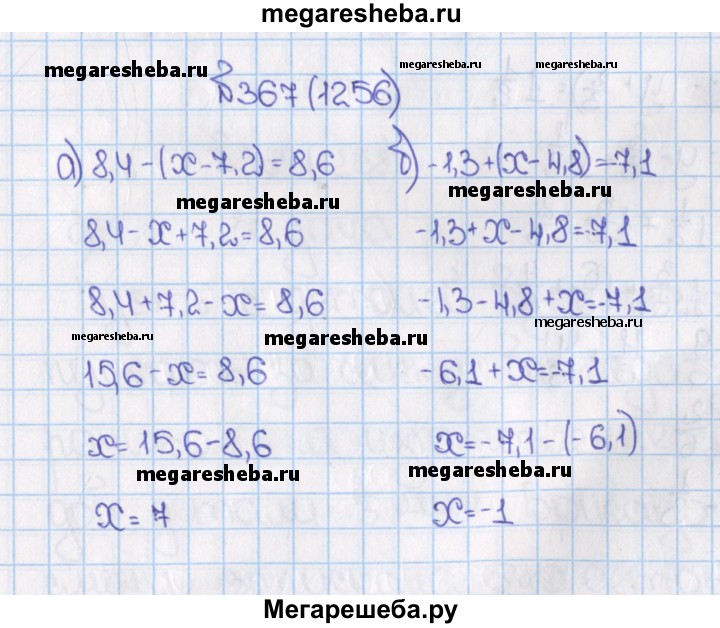 megaresheba.ru
megaresheba.ru megaresheba.ru megaresheba.ru
№367 (1256)
а) 8,4-(x-7,2)=8,6
megaresheba.ru
8,4-x+7,2=8,6
8,4+7,2-x=8,6
megaresheba.ru
15,6-x=8,6
x=15,6-8,6
megaresheba.ru
x=7
б) -1,3+(x-4,8)=-7,1
megaresheba.ru
-1,3+x-4,8=-7,1
-1,3-4,8+x=-7,1
megaresheba.ru
megaresheba.ru
-6,1+x=-7,1
x=-7,1-(-6,1)
megaresheba.ru
x=-1
Мегарешеба.ру